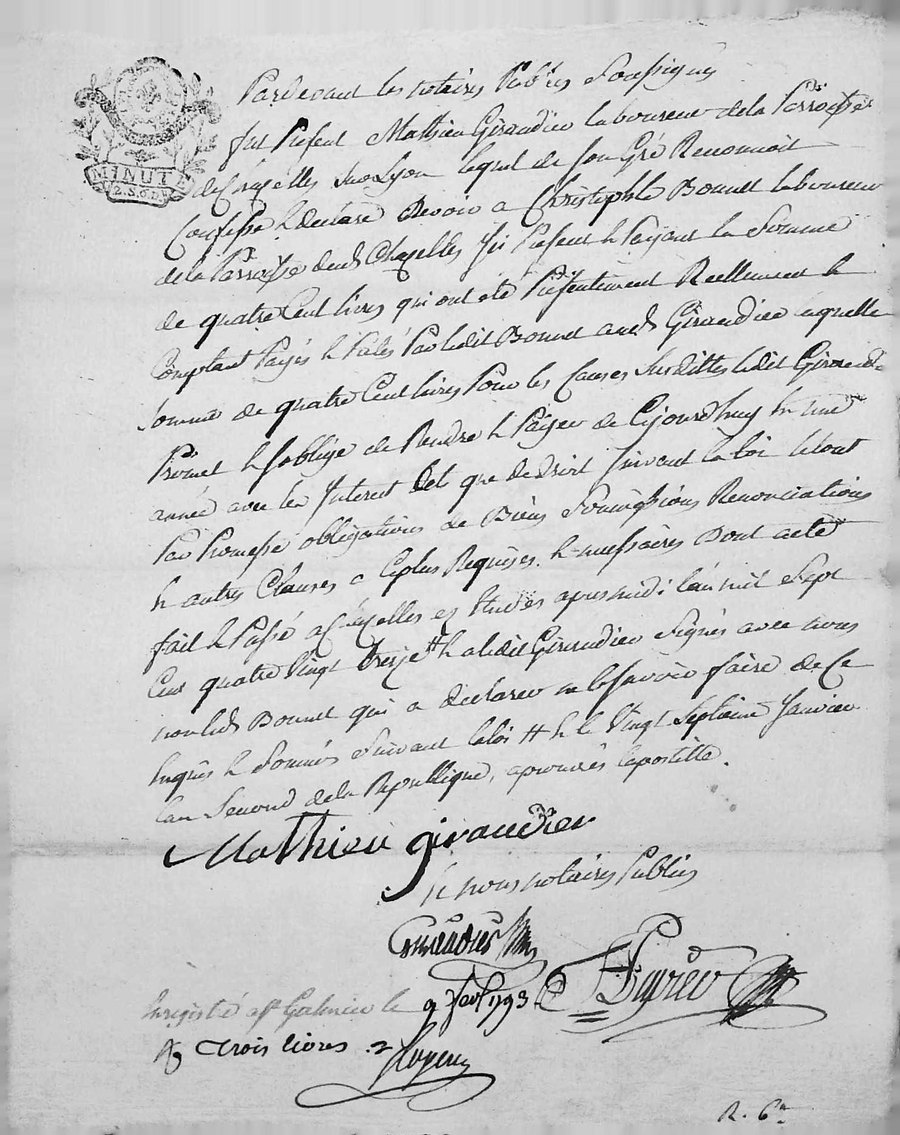 MINUTE
2.S.6.D.
Pardevant les notaires Publics Soussignés
fut Présent Mathieu Giraudier laboureur de la Parroisse
de Chazelles Sur Lyon lequel de son Gré Reconnoit
Confesse & declare Devoir a Christophle Bonnet laboureur
de la Parroisse dud Chazelles Ici Présent & Payant la Somme
de quatre Cent livres qui ont été Présentement Reellement &
Comptant Payés & Palés Par ledit Bonnet aud Giraudier laquelle
Somme de quatre Cent livres Pour les Causes Surdittes ledit Giraudier
Promet & s'oblige de Rendre & Paÿer de Cejourdhuy En une
année avec les Interet tels que de droit Suivant la loi le tout
Par Promesse obligations de Biens Soumissions Renonciations
& autres Clauses a Ce plus Requises & nessaires Dont acte
fait & Passé a Chazelles ez Etudes apres midi l'an mil Sept
Cent quatre Vingt treize # & a ledit Giraudier Signés avec nous
non led Bonnet qui a déclarer ne le Savoir faire de Ce
Enquis & Sommés Suivant la loi # & le Vingt Septieme Janvier
l'an Second de la Republique, aprouvés lapostille.
Mathieu giraudier
Et nous notaires Publics
Giraudier
Enregistré a St Galmier le 9 fevr 1793
R trois livres
R. 6